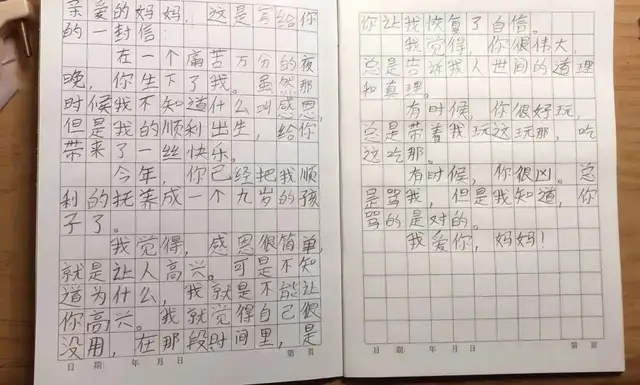 亲爱的妈妈，这是写给你
的一封信：
在一个痛苦万分的夜
晚，你生下了我。虽然那
时候我不知道什么叫感恩，
但是我的顺利出生，给你
带来了一丝快乐。
今年，你已经把我顺
利的抚养成一个九岁的孩
子了。
我觉得，感恩很简单，
就是让人高兴。可是不知
道为什么，我就是不能让
你高兴。我就觉得自己很
没用，在那段时间里，是
日 期： 年 月 日 第 页
你让我恢复了自信。
我觉得，你很伟大，
总是告诉我人世间的道理
和真理。
有时候，你很好玩，
总是带着我玩这玩那，吃
这吃那。
有时候，你很凶。总
是骂我，但是我知道，你
骂的是对的。
我爱你，妈妈！
日 期： 年 月 日 第 页